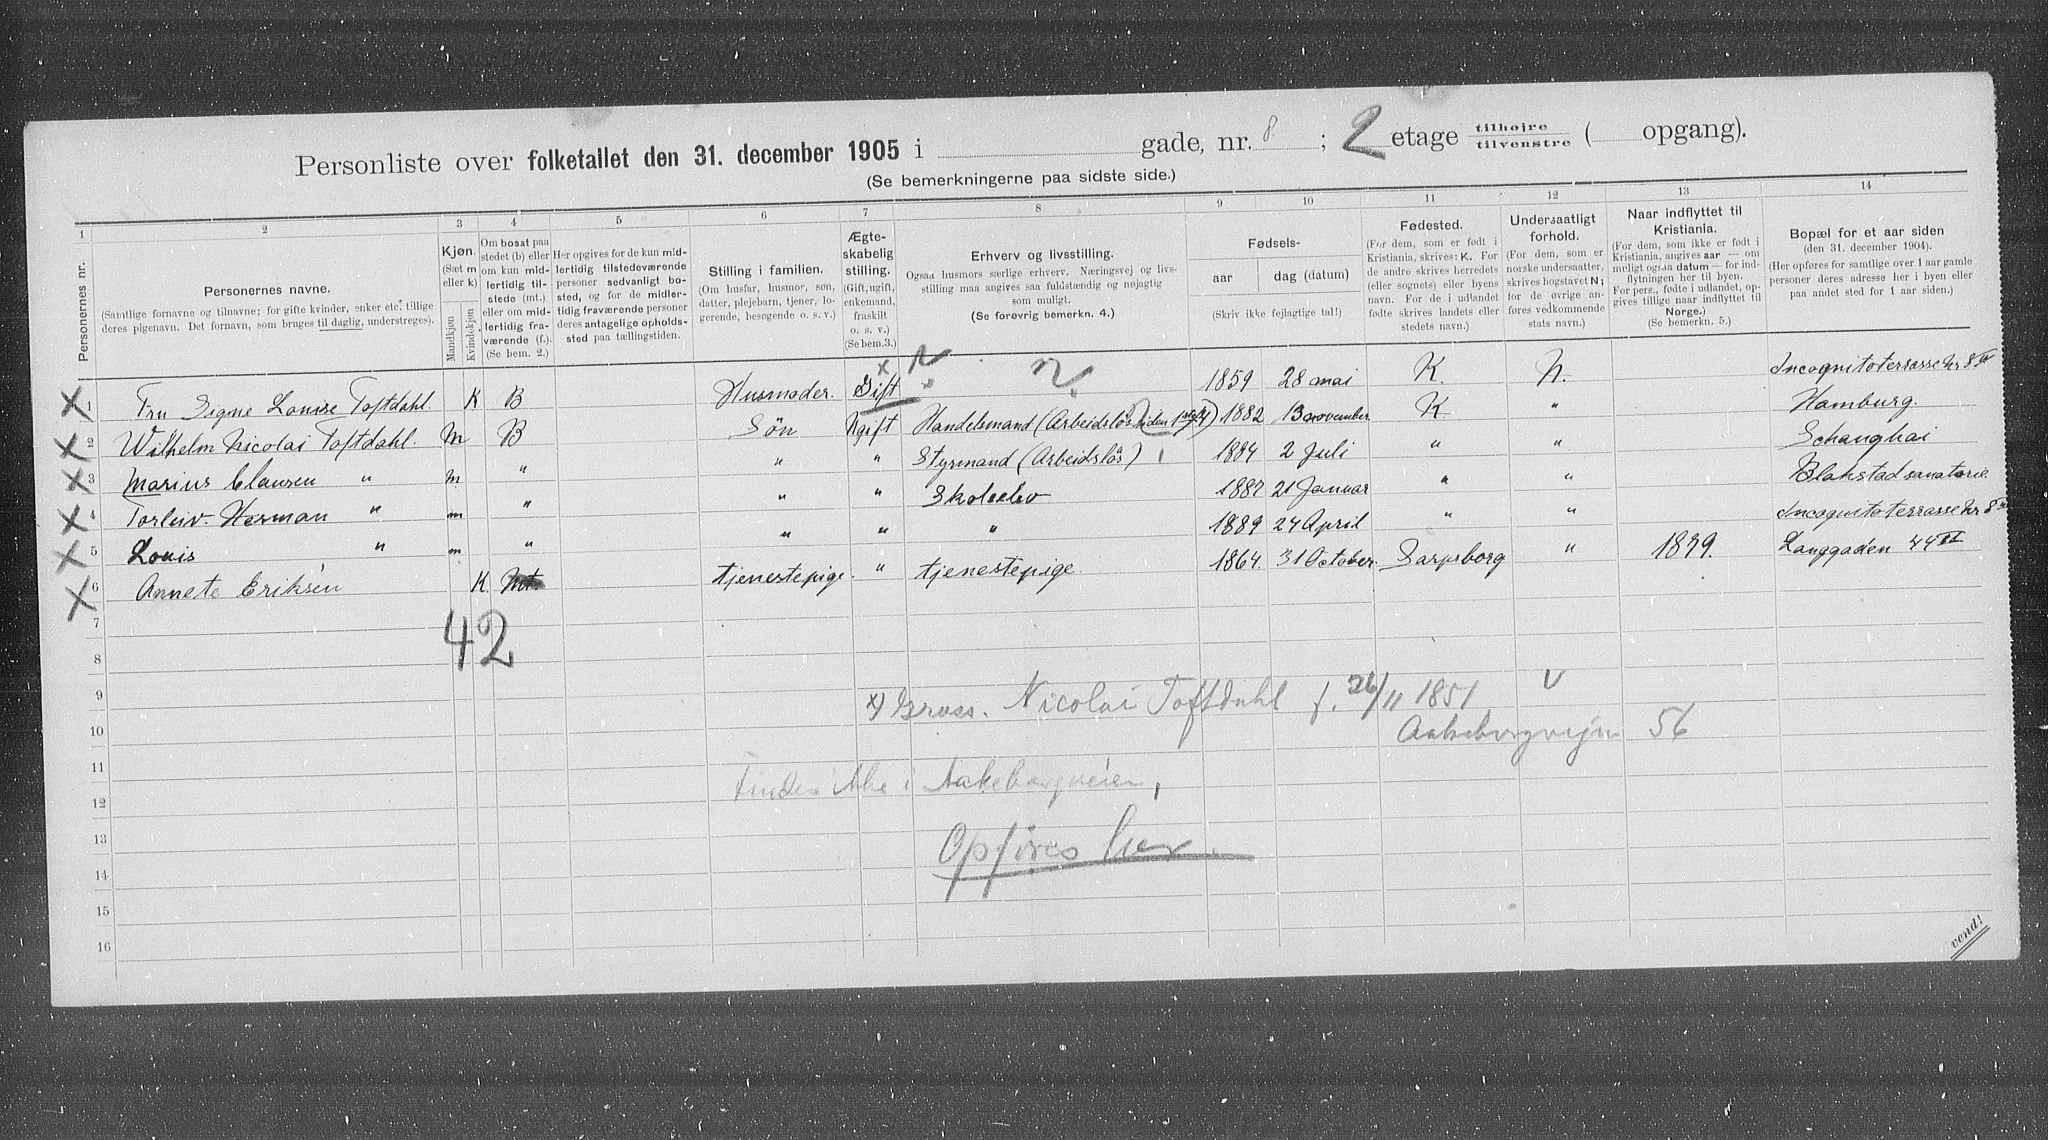 Personliste over folketallet den 31. december 1905 i gade, nr. 8 ; 2 etage tilhøjre tilvenstre ( opgang).
(Se bemerkningerne paa sidste side.)
1 2 3 4 5 6 7 8 9 10 11 12 13 14
Personernes nr.
Personernes navne.
(Samtlige fornavne og tilnavne; for gifte kvinder, enker etc. tillige
deres pigenavn. Det fornavn, som bruges til daglig, understreges).
Kjøn.
(Sæt m
eller k)
Mandkjøn
Kvindekjøn
Om bosat paa
stedet (b) eller
om kun mid-
lertidig til-
stede (mt.)
eller om mid-
lertidig fra-
værende (f.).
(Se bem. 2.)
Her opgives for de kun mid-
lertidig tilstedeværende
personer sedvanligt bo-
sted, og for de midler-
tidig fraværende personer
deres antagelige opholds-
sted paa tællingstiden.
Stilling i familien.
(Om husfar, husmor, søn,
datter, plejebarn, tjener, lo-
gerende, besøgende o. s. v.)
Ægte-
skabelig
stilling.
(Gift, ugift,
enkemand,
fraskilt
o. s. v.)
(Se bem.3.)
Erhverv og livsstilling.
Ogsaa husmors særlige erhverv. Næringsvej og livs-
stilling maa angives saa fuldstændig og nøjagtig
som muligt.
(Se forøvrig bemerkn. 4.)
Fødsels-
aar dag (datum)
(Skriv ikke fejlagtige tal!)
Fødested.
(For dem, som er født i
Kristiania, skrives: K. For
de andre skrives herredets
(eller sognets) eller byens
navn. For de i udlandet
fødte skrives landets eller
stedets navn.)
Undersaatligt
forhold.
(For dem, som er
norske undersaatter,
skrives bogstavet N;
for de øvrige an-
føres vedkommende
stats navn.)
Naar indflyttet til
Kristiania.
(For dem, som ikke er født i
Kristiania, angives aar — om
muligt ogsaa datum — for ind-
flytningen her til byen.
For pers., fødte i udlandet, op-
gives tillige naar indflyttet til
Norge.)
(Se bemerkn. 5.)
Bopæl for et aar siden
(den 31. december 1904).
(Her opføres for samtlige over 1 aar gamle
personer deres adresse her i byen eller
paa andet sted for 1 aar siden.)
X 1 Fru Signe Louise Toftdahl. K B Husmoder. Gift x 1859 28 mai K. N. Incognitoterrasse Nr 8 II
X 2 Wilhelm Nicolai Toftdahl. M B Søn Ugift Handelsmand (Arbeidslös siden 1 sept) 1882 13 november K. " Hamburg.
X 3 Marius Clausen " m " " " Styrmand (Arbeidslös) 1884 2 Juli " " Schanghai
X 4 Torleiv Herman " m " " " Skoleelev 1887 21 Januar " " Blakstad sanatorie.
X 5 Louis " m " " " " 1889 24 April " " Incognitoterrasse Nr 8
X 6 Annete Eriksen K. Mt. tjenestepige. " tjenestepige. 1864. 31 October. Sarpsborg " 1899. Langgaden 44 II
7
42
8
9
x) Gross. Nicolai Toftdahl f. 26/11 1851
10
Aakebergvejen 56
11
Findes ikke i Aakebergveien,
12
13
Opføres her.
14
15
16
vend!